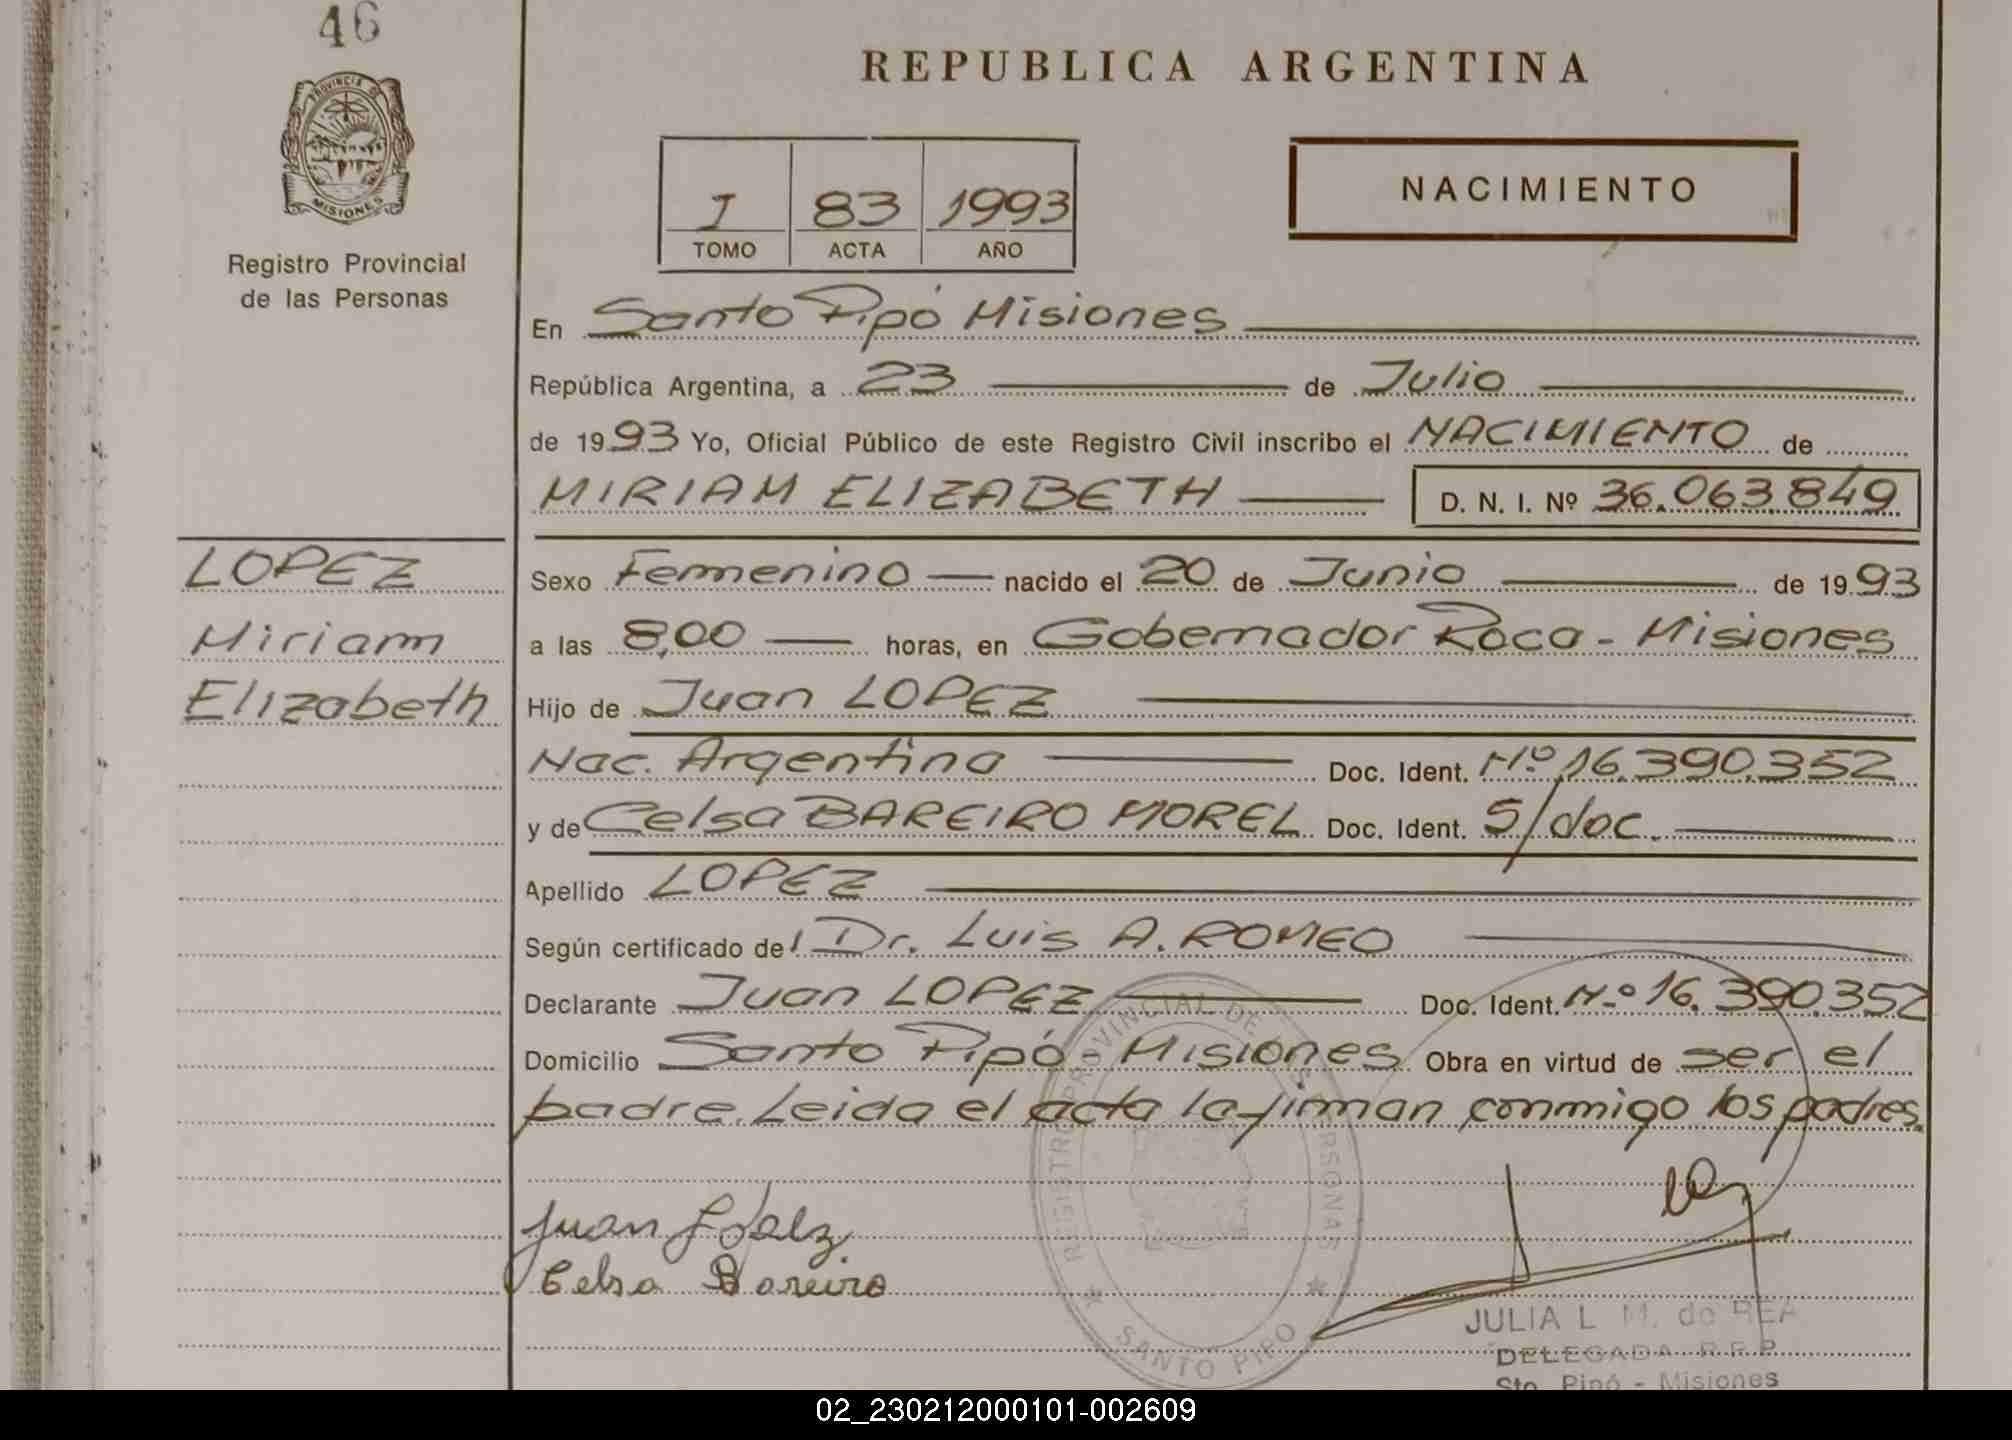 46
PROVINCIA DE
MISIONES
Registro Provincial
de las Personas
REPUBLICA ARGENTINA
I 83 1993
TOMO ACTA AÑO
NACIMIENTO
En Santo Pipó Misiones
República Argentina, a 23 de Julio
de 1993 Yo, Oficial Público de este Registro Civil inscribo el NACIMIENTO de
MIRIAM ELIZABETH D. N. I. Nº 36.063.849
LOPEZ
Miriam
Elizabeth
Sexo Femenino nacido el 20 de Junio de 1993
a las 8,00 horas, en Gobernador Roca - Misiones
Hijo de Juan LOPEZ
Nac. Argentina Doc. Ident. Nº 16.390.352
y de Celsa BAREIRO MOREL Doc. Ident. S/doc.
Apellido LOPEZ
Según certificado de Dr. Luis A. ROMEO
Declarante Juan LOPEZ Doc. Ident. Nº 16.390.352
Domicilio Santo Pipó - Misiones Obra en virtud de ser el
padre. Leida el acta la firman conmigo los padres.
REGISTRO PROVINCIAL DE LAS PERSONAS
SANTO PIPO
Juan
Celsa Bareiro
JULIA L. M. de REA
DELEGADA R.R.P.
Sto. Pipó - Misiones
02_230212000101-002609